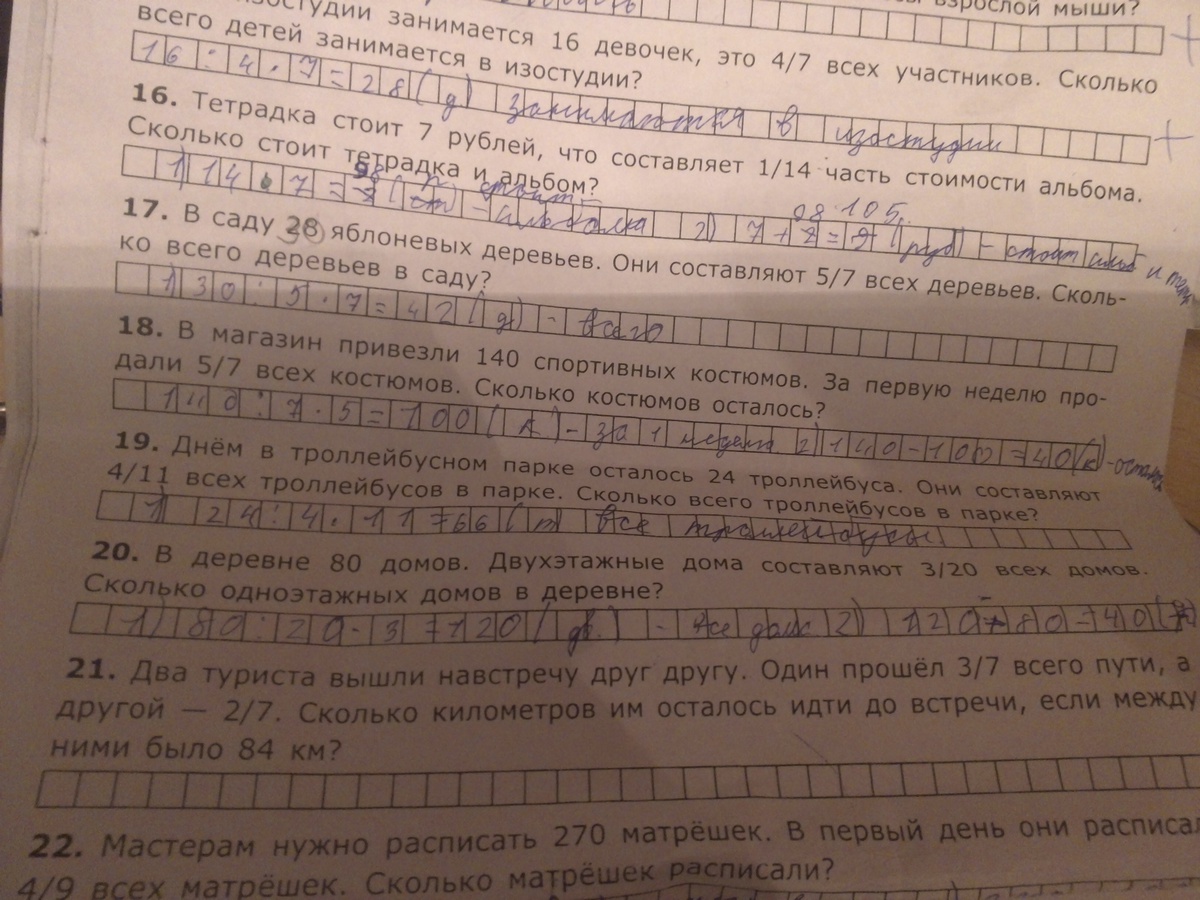 взрослой мыши?
изостудии занимается 16 девочек, это 4/7 всех участников. Сколько
всего детей занимается в изостудии?
16 : 4 · 7 = 28 (д) занимаются в изостудии
16. Тетрадка стоит 7 рублей, что составляет 1/14 часть стоимости альбома.
Сколько стоит тетрадка и альбом?
98 стоит
1) 14 · 7 =
98 105
2) 7 + = (руб) - стоит альб и тетр
17. В саду 28 яблоневых деревьев. Они составляют 5/7 всех деревьев. Сколь-
30
ко всего деревьев в саду?
1) 30 : 5 · 7 = 42 (д) - всего
18. В магазин привезли 140 спортивных костюмов. За первую неделю про-
дали 5/7 всех костюмов. Сколько костюмов осталось?
: 7 · 5 = 100 (к) - за 1 недел 2) 140 - 100 = 40 (к) - остал
19. Днём в троллейбусном парке осталось 24 троллейбуса. Они составляют
4/11 всех троллейбусов в парке. Сколько всего троллейбусов в парке?
1) 24 : 4 · 11 = 66 (т все
20. В деревне 80 домов. Двухэтажные дома составляют 3/20 всех домов.
Сколько одноэтажных домов в деревне?
1) 80 : 20 · 3 = 120 ( - 2) 120 - 80 = 40
21. Два туриста вышли навстречу друг другу. Один прошёл 3/7 всего пути, а
другой — 2/7. Сколько километров им осталось идти до встречи, если между
ними было 84 км?
22. Мастерам нужно расписать 270 матрёшек. В первый день они расписал
4/9 всех матрёшек. Сколько матрёшек расписали?